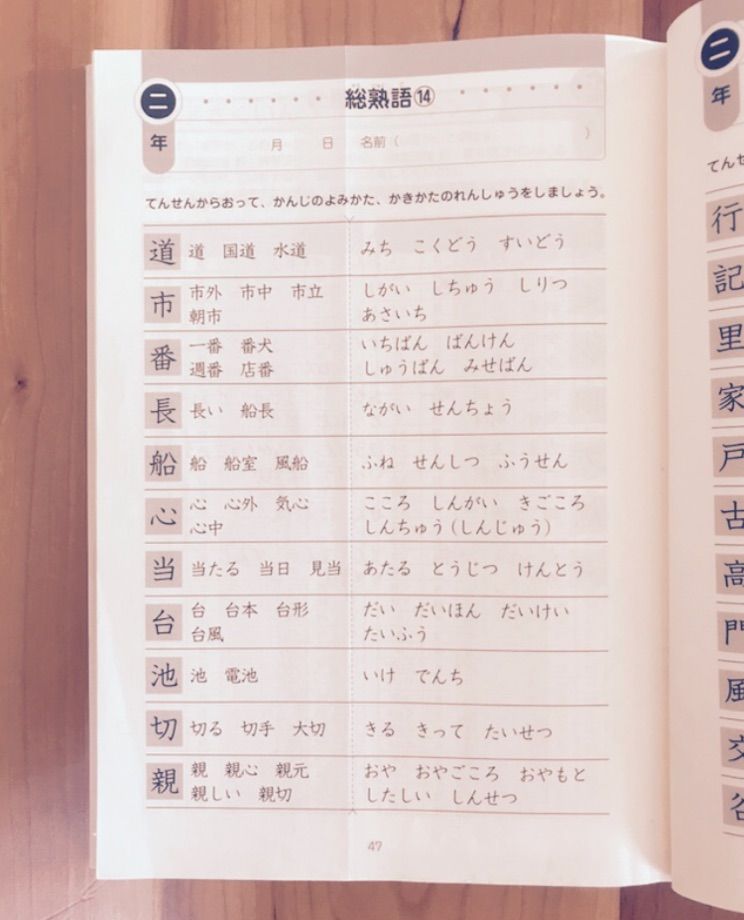 二年 総熟語⑭
月 日 名前（ ）
てんせんからおって、かんじのよみかた、かきかたのれんしゅうをしましょう。
道 道 国道 水道 みち こくどう すいどう
市 市外 市中 市立 しがい しちゅう しりつ
朝市 あさいち
番 一番 番犬 いちばん ばんけん
週番 店番 しゅうばん みせばん
長 長い 船長 ながい せんちょう
船 船 船室 風船 ふね せんしつ ふうせん
心 心 心外 気心 こころ しんがい きごころ
心中 しんちゅう（しんじゅう）
当 当たる 当日 見当 あたる とうじつ けんとう
台 台 台本 台形 だい だいほん だいけい
台風 たいふう
池 池 電池 いけ でんち
切 切る 切手 大切 きる きって たいせつ
親 親 親心 親元 おや おやごころ おやもと
親しい 親切 したしい しんせつ
47
二年
てんせ
行
記
里
家
戸
古
高
門
風
交
谷